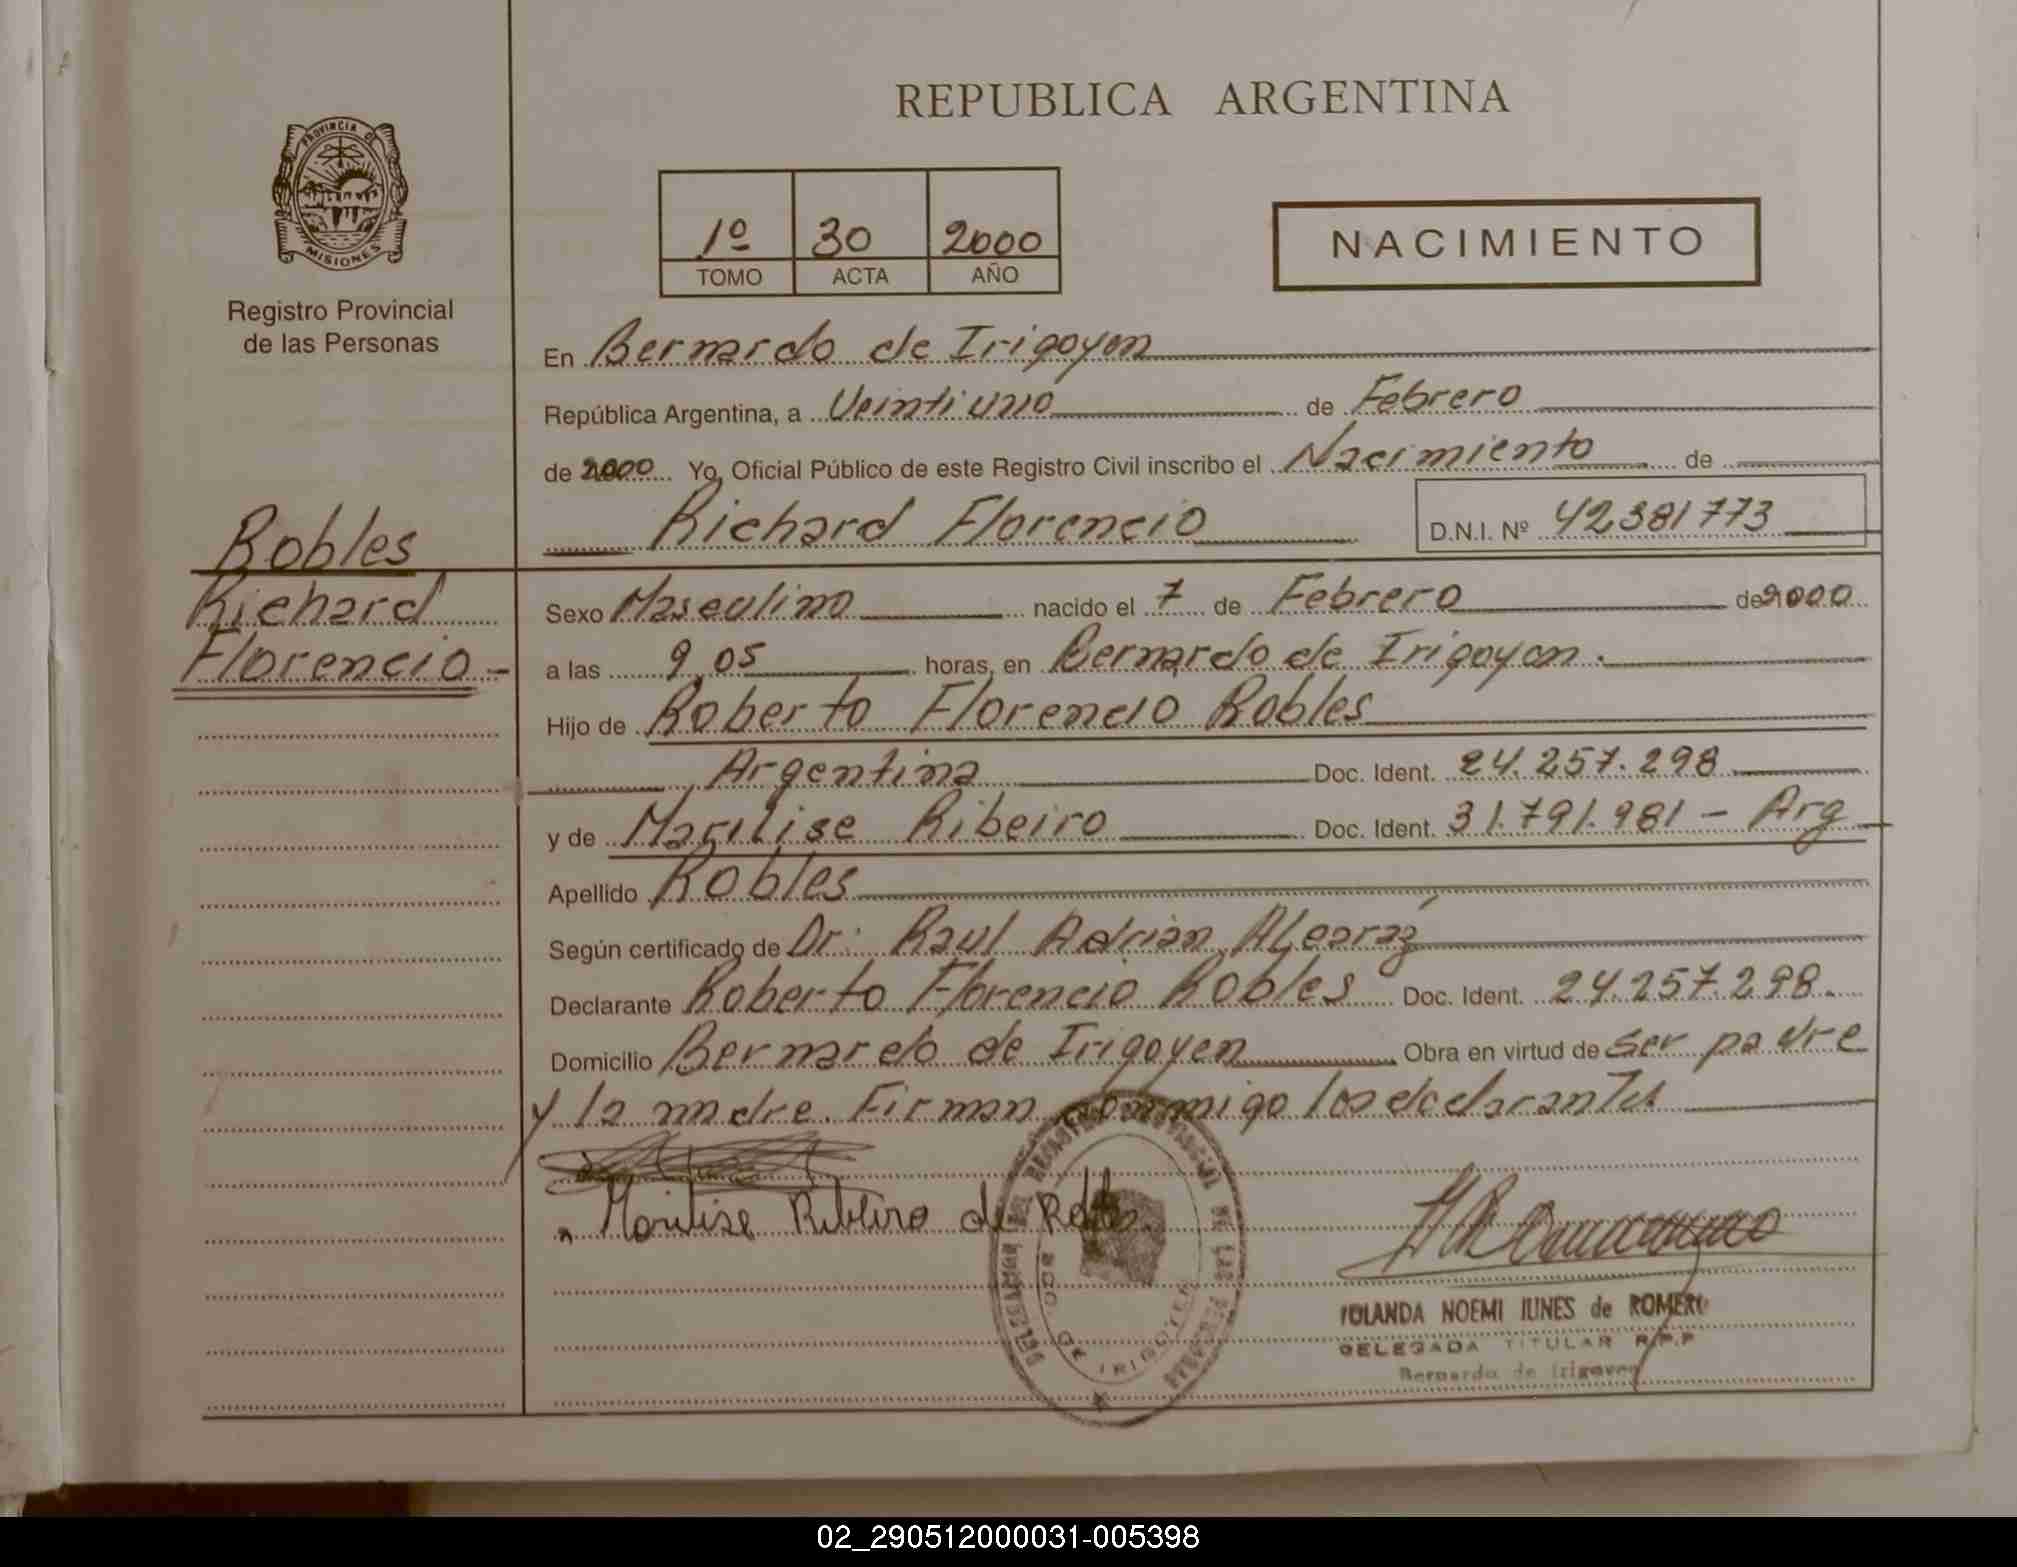 REPUBLICA ARGENTINA
PROVINCIA D
MISIONES
Registro Provincial
de las Personas
1º 30 2000
TOMO ACTA AÑO
NACIMIENTO
En Bernardo de Irigoyen
República Argentina, a Veintiuno de Febrero
de 2000 Yo, Oficial Público de este Registro Civil inscribo el Nacimiento de
Richard Florencio D.N.I. Nº 42381773
Robles
Richard
Florencio-
Sexo Masculino nacido el 7 de Febrero de 2000
a las 9,05 horas, en Bernardo de Irigoyen.
Hijo de Roberto Florencio Robles
Argentina Doc. Ident. 24.257.298
y de Marilise Ribeiro Doc. Ident. 31.791.981 - Arg
Apellido Robles
Según certificado de Dr: Raul Adrian Alcaraz
Declarante Roberto Florencio Robles Doc. Ident. 24.257.298.
Domicilio Bernardo de Irigoyen Obra en virtud de Ser padre
y la madre. Firman conmigo los declarantes
Marilise Ribeiro de
REGISTRO PROVINCIAL DE LAS PERSONAS
BDO. DE IRIGOYEN
YOLANDA NOEMI IUNES de ROMERO
DELEGADA TITULAR R.P.P
Bernardo de Irigoyen
02_290512000031-005398